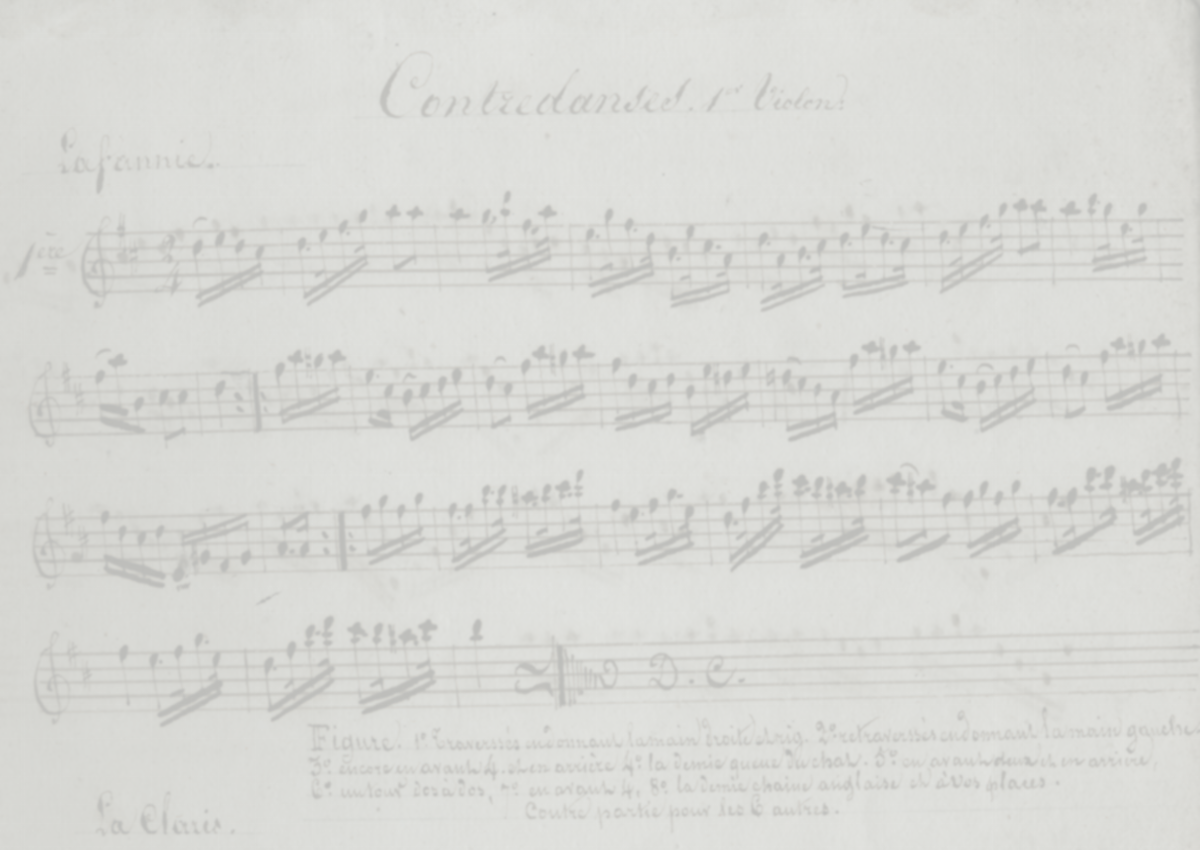 Contredanses. 1er Violon.
La fannie.
1ère
D. C.
Figure. 1° Traversées en donnant la main droite et rig. 2° retraversés en donnant la main gauche.
3° encore en avant 4. et en arrière 4° la demie queue du chat. 5° en avant deux et en arrière,
6° un tour dos à dos, 7° en avant 4, 8° la demie chaine anglaise et à vos places.
Contre partie pour les 6 autres.
La Claris.